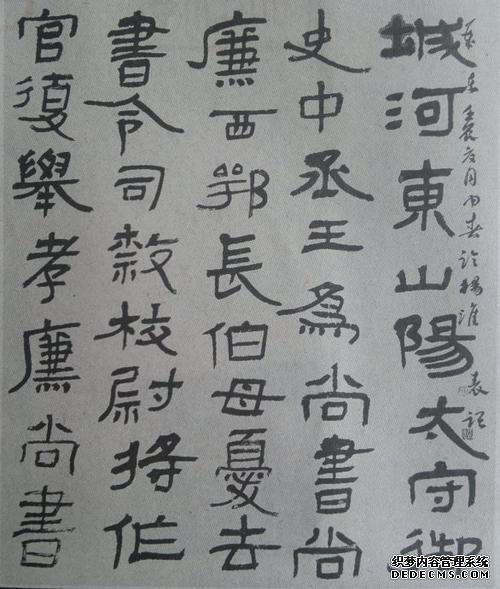 城河東山陽太守御
史中丞王爲尚書尚
廉西鄂長伯母憂去
書令司隸校尉將作
官復舉孝廉尚書
臨楊淮表記
织梦内容管理系统
DEDECMS.COM